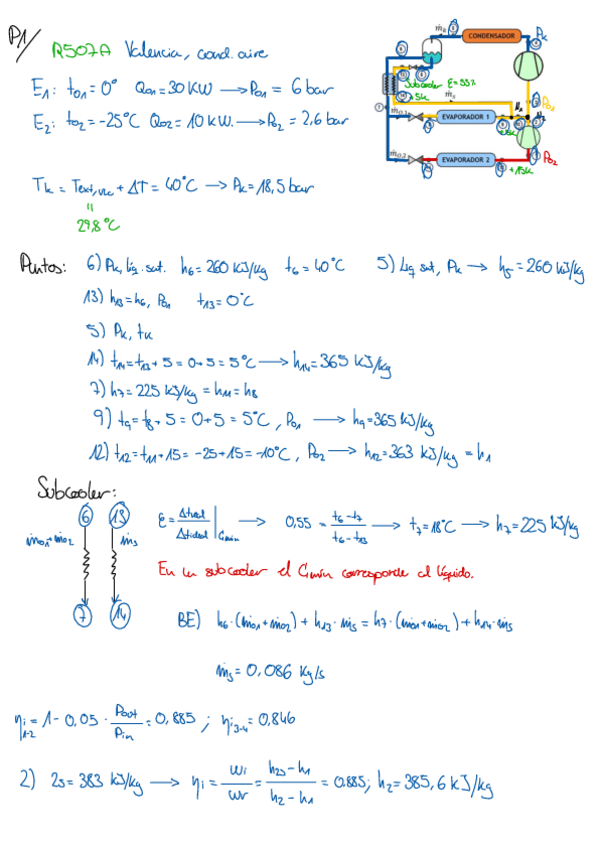 P1/
R507A Valencia, cond. aire
E1: to1 = 0° Qo1 = 30 KW → Po1 = 6 bar
E2: to2 = -25°C Qo2 = 10 KW. → Po2 = 2,6 bar
CONDENSADOR
Pk
Subcooler ε=55%
+5k
EVAPORADOR 1
Po1
EVAPORADOR 2
Po2
+15k
Tk = Text,VLC + ΔT = 40°C → Pk = 18,5 bar
29,8°C
Puntos: 6) Pk, líq. sat. h6 = 260 KJ/Kg t6 = 40°C 5) Liq sat, Pk → h5 = 260 KJ/Kg
13) h13 = h6, Po1 t13 = 0°C
5) Pk, tk
14) t14 = t13 + 5 = 0 + 5 = 5°C → h14 = 365 KJ/Kg
7) h7 = 225 KJ/Kg = h11 = h8
9) t9 = t8 + 5 = 0 + 5 = 5°C, Po1 → h9 = 365 KJ/Kg
12) t12 = t11 + 15 = -25 + 15 = -10°C, Po2 → h12 = 363 KJ/Kg = h1
Subcooler:
6 13
ṁo1+ṁo2 ṁs
7 14
ε = Δtreal / Δtideal | Cmin → 0,55 = t6-t7 / t6-t13 → t7 = 18°C → h7 = 225 KJ/Kg
En un subcooler el Cmin corresponde al líquido.
BE) h6·(ṁo1+ṁo2) + h13·ṁs = h7·(ṁo1+ṁo2) + h14·ṁs
ṁs = 0,086 Kg/s
ηi 1-2 = 1 - 0,05 · Pout / Pin = 0,885 ; ηi 3-4 = 0,846
2) 2s = 383 KJ/Kg → ηi = wi / wr = h2s - h1 / h2 - h1 = 0.885; h2 = 385,6 KJ/Kg